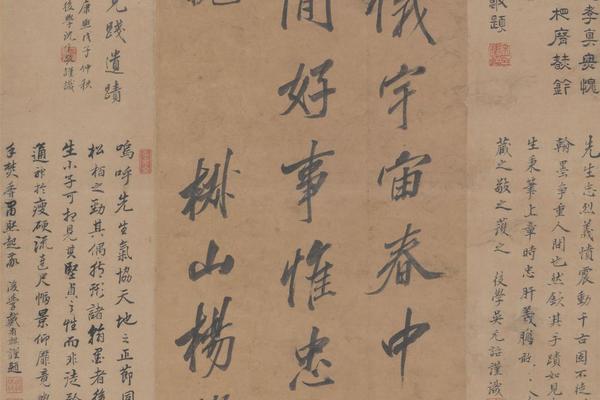 李真
敬題
先生忠烈義憤震動千古固不徒
翰墨爭重人間也然欽其手蹟如見
生秉筆上章時忠肝義膽
藏之敬之護之 後學吳元詒謹識
宇宙春中
間好事惟忠
椒山楊
遺蹟
康熙戊子仲秋
後學沈 謹識
嗚呼先生氣協天地之正節同
松柏之勁其偶於形諸翰墨者後
生小子可想見其堅貞之性而非徒
通神於瘦硬流連尺幅景仰靡竟
手焚香肅然起敬 後學戴 謹題